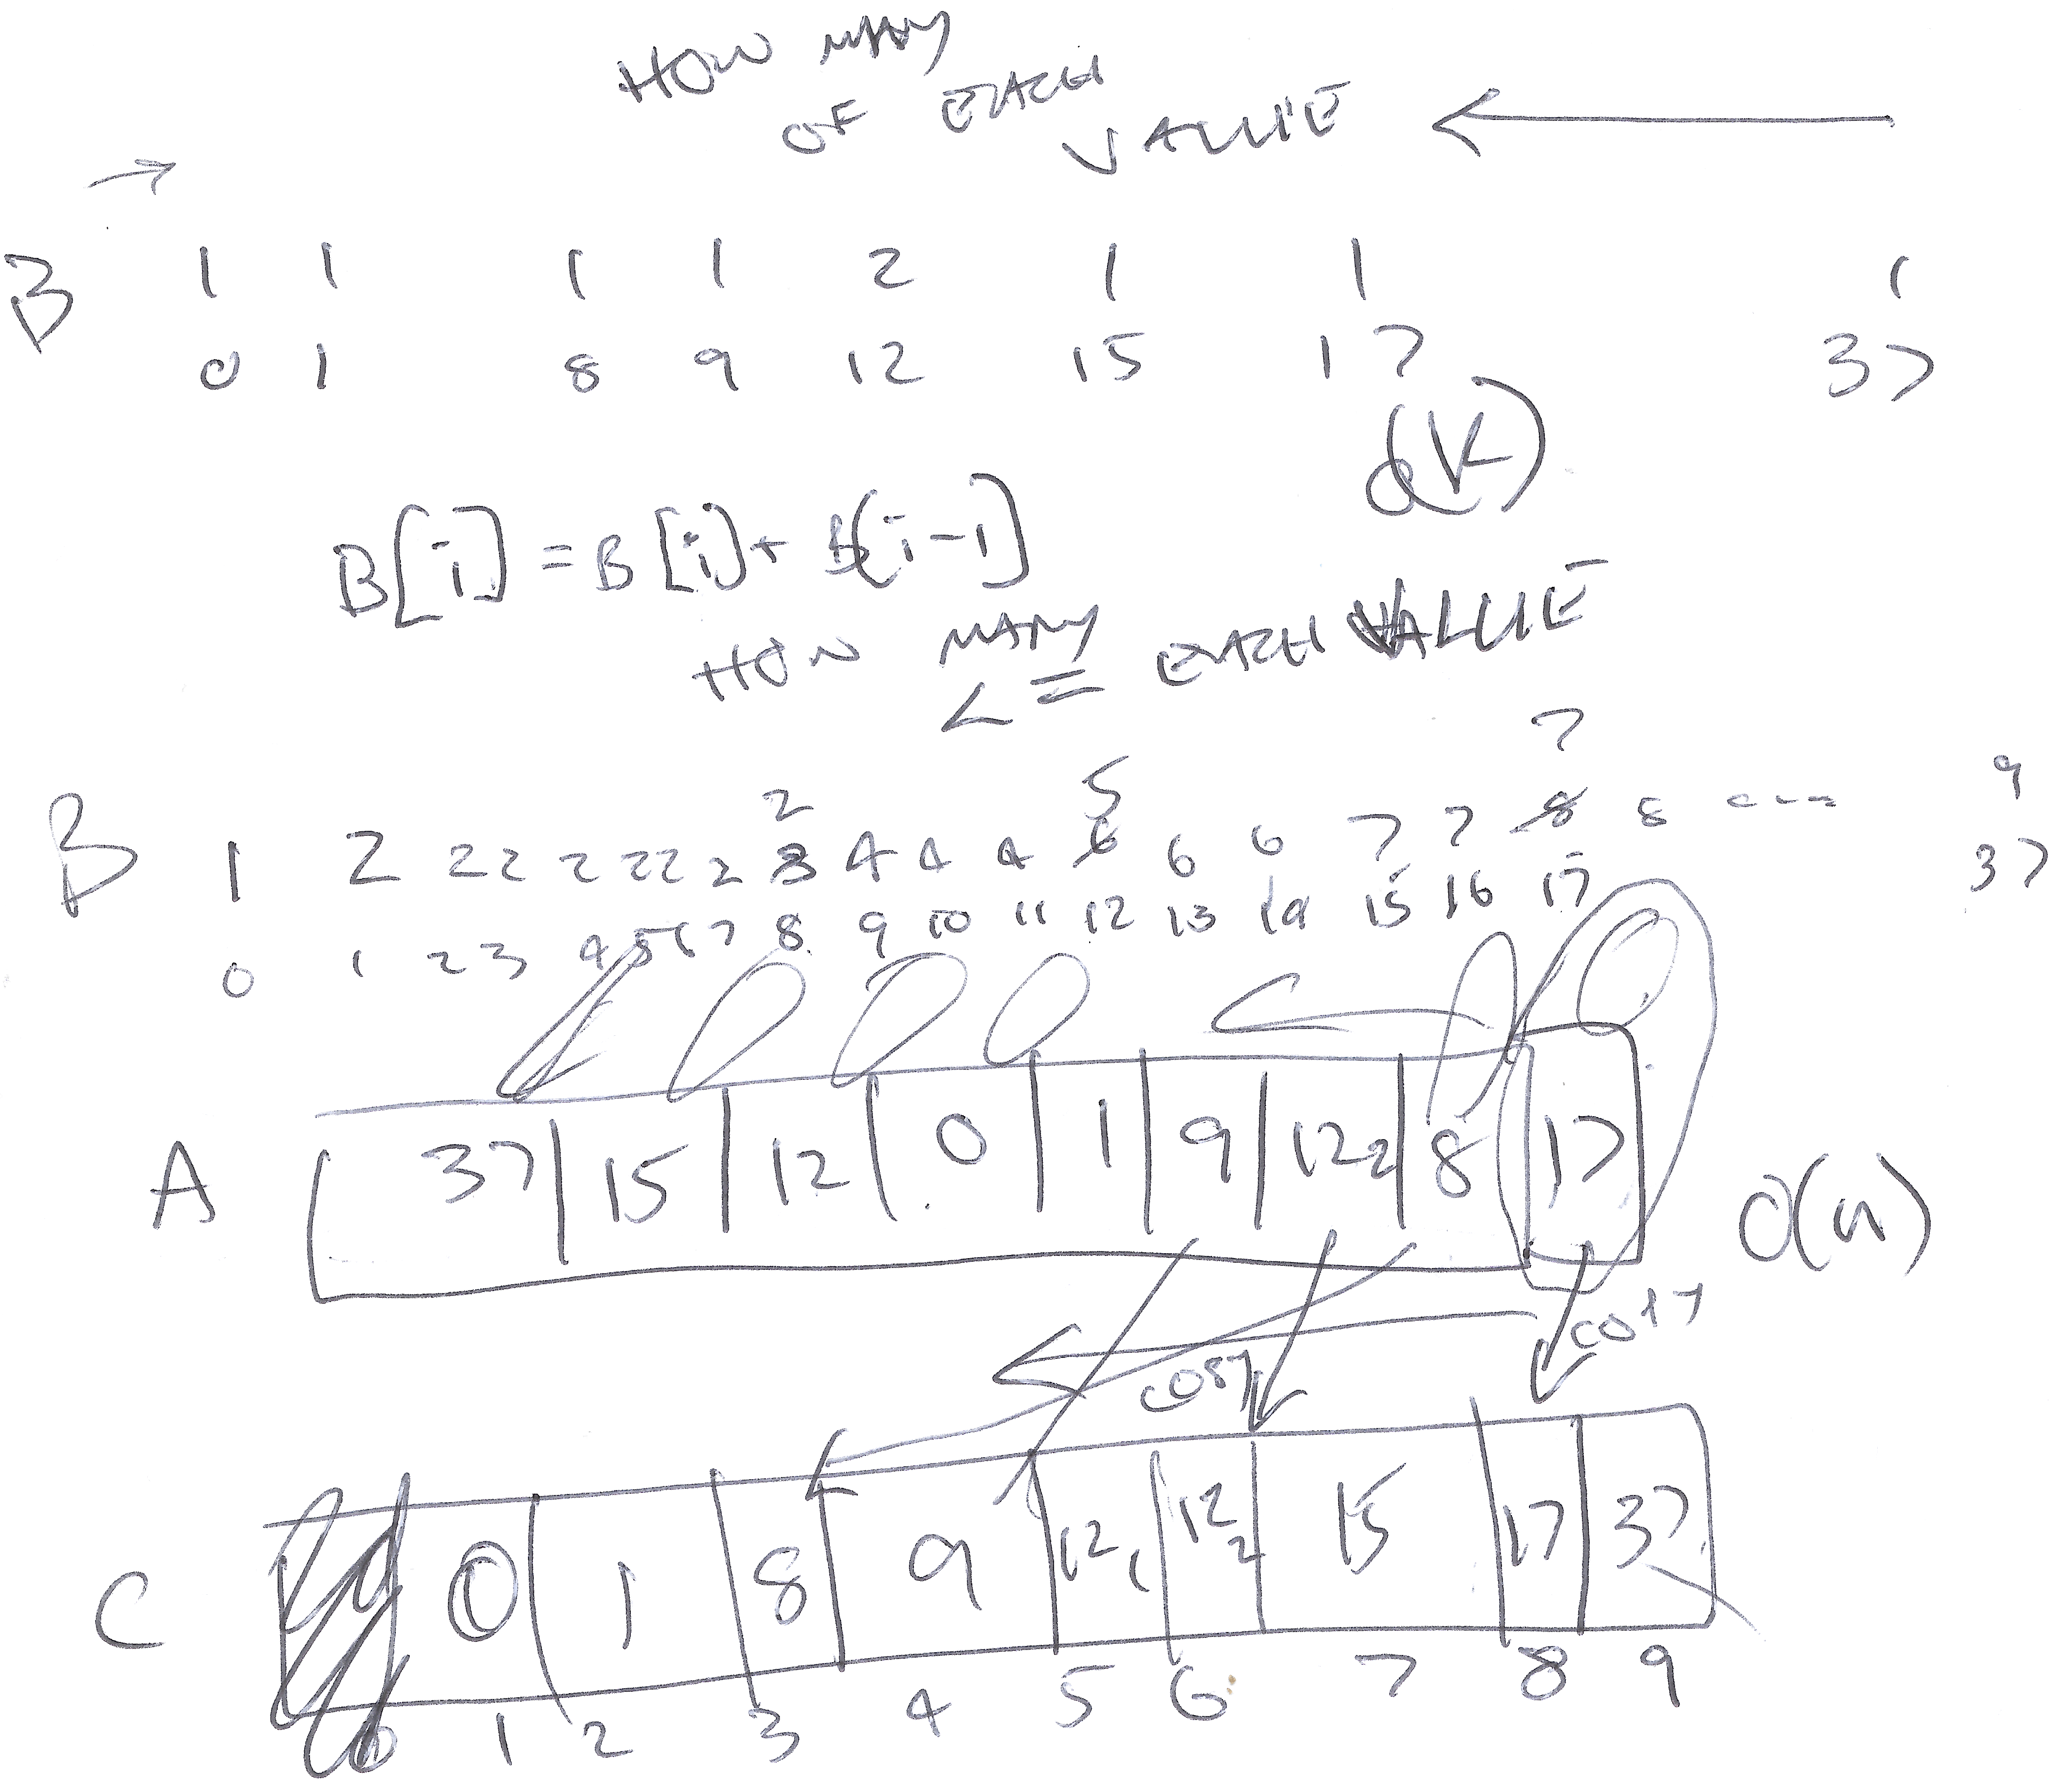 HOW MANY
OF EACH
VALUE
B 1 1 1 1 2 1 1 1
0 1 8 9 12 15 17 37
O(K)
B[i] = B[i] + B[i-1]
HOW MANY
<= EACH VALUE
2 5 7
B 1 2 2 2 2 2 2 2 3 4 4 4 6 6 6 7 7 8 8 --- 9
0 1 2 3 4 5 6 7 8 9 10 11 12 13 14 15 16 17 37
A 37 15 12 0 1 9 12 2 8 17 O(n)
C 0 1 8 9 12 1 12 2 15 17 37
0 1 2 3 4 5 6 7 8 9